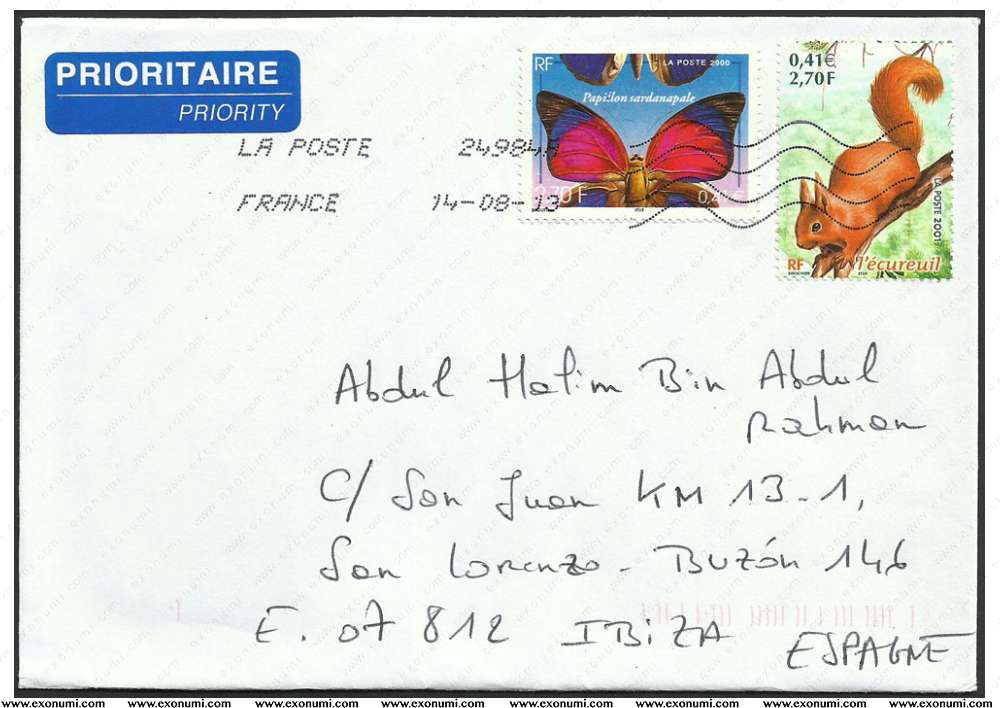 PRIORITAIRE
PRIORITY
RF
LA POSTE 2000
Papillon sardanapale
2,70 F
0,41€
0,41€
2,70 F
LA POSTE 2001
RF
l'écureuil
LA POSTE 24984A
FRANCE 14-08-13
Abdul Halim Bin Abdul
Rahman
C/ San Juan KM 13-1,
San Lorenzo - Buzón 146
E. 07 812 IBIZA
ESPAGNE
www.exonumi.com www.exonumi.com www.exonumi.com www.exonumi.com www.exonumi.com www.exonumi.com www.exonumi.com www.exonumi.com